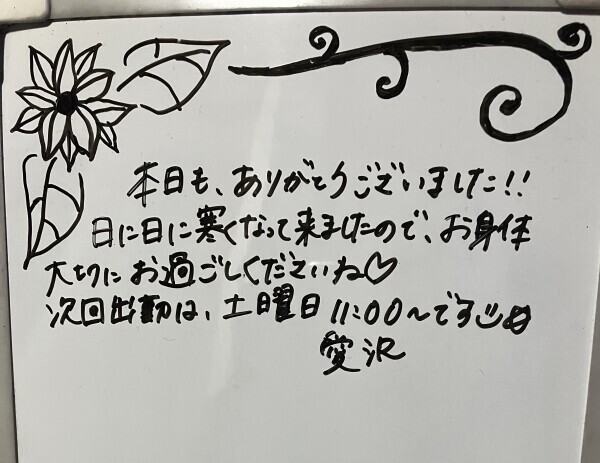 本日も、ありがとうございました!!
日に日に寒くなって来ましたので、お身体
大切にお過ごしくださいね♡
次回出勤は、土曜日11:00〜です
愛沢